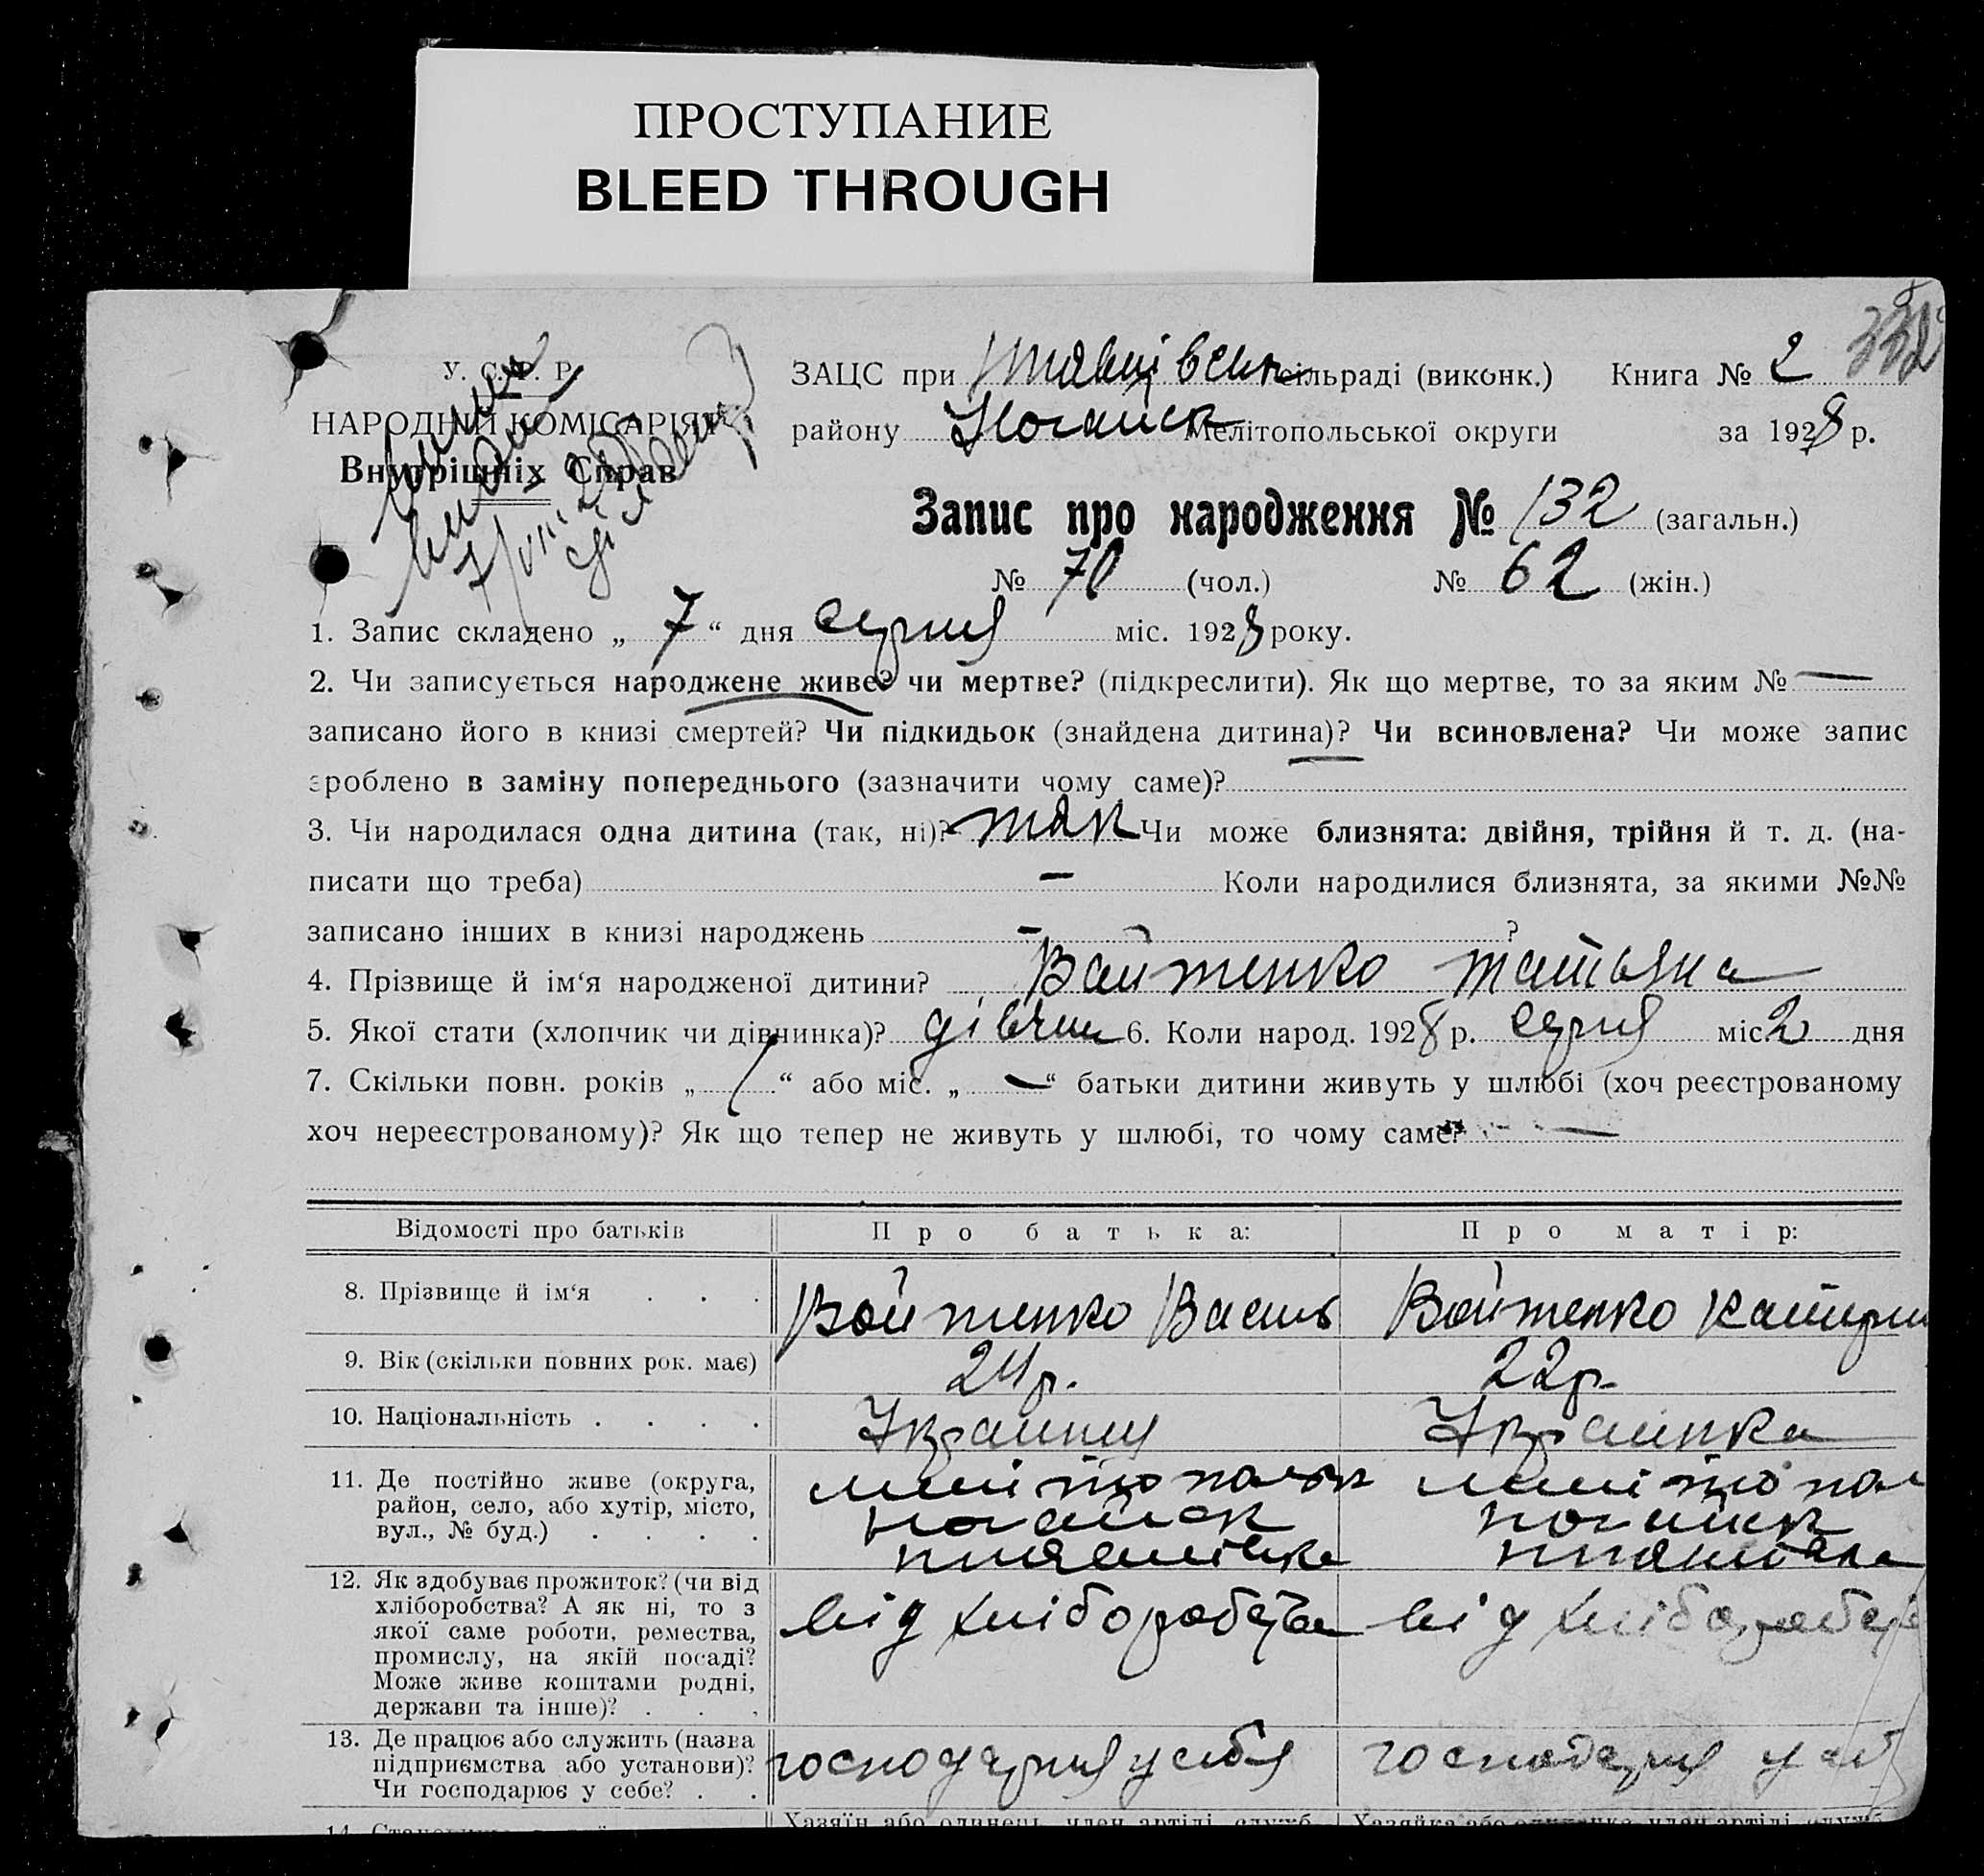 ПРОСТУПАНИЕ
BLEED THROUGH
У. С. Р. Р.
НАРОДНІЙ КОМІСАРІЯТ
Внутрішніх Справ
ЗАЦС при сільраді (виконк.) Книга № 2
району Ногайськ Мелітопольської округи за 1928 р.
Запис про народження № 132 (загальн.)
№ 70 (чол.) № 62 (жін.)
1. Запис складено „ 7 “ дня серпня міс. 1928 року.
2. Чи записується народжене живе? чи мертве? (підкреслити). Як що мертве, то за яким № —
записано його в книзі смертей? Чи підкидьок (знайдена дитина)? Чи всиновлена? Чи може запис
зроблено в заміну попереднього (зазначити чому саме)?
3. Чи народилася одна дитина (так, ні)? так Чи може близнята: двійня, трійня й т. д. (на-
писати що треба) — Коли народилися близнята, за якими №№
записано інших в книзі народжень — ?
4. Прізвище й ім‘я народженої дитини? Войтенко Татьяна
5. Якої стати (хлопчик чи дівчинка)? дівчин 6. Коли народ. 1928 р. серпня міс. 2 дня
7. Скільки повн. років „ 1 “ або міс. „ — “ батьки дитини живуть у шлюбі (хоч реєстрованому
хоч нереєстрованому)? Як що тепер не живуть у шлюбі, то чому саме? —
Відомості про батьків Про батька: Про матір:
8. Прізвище й ім‘я . . . Войтенко Василь Войтенко Катерин
9. Вік (скільки повних рок. має) 24 р. 22 р.
10. Національність . . . . Украинец Украинка
11. Де постійно живе (округа,
район, село, або хутір, місто,
вул., № буд.) . . . .
12. Як здобуває прожиток? (чи від
хліборобства? А як ні, то з
якої саме роботи, ремества,
промислу, на якій посаді?
Може живе коштами родні,
держави та інше)? . . .
від хліборобства від хліборобс
13. Де працює або служить (назва
підприємства або установи)?
Чи господарює у себе? . .
господарня у себя господарня у себ
Хазяїн або одинець, член артілі, служб.